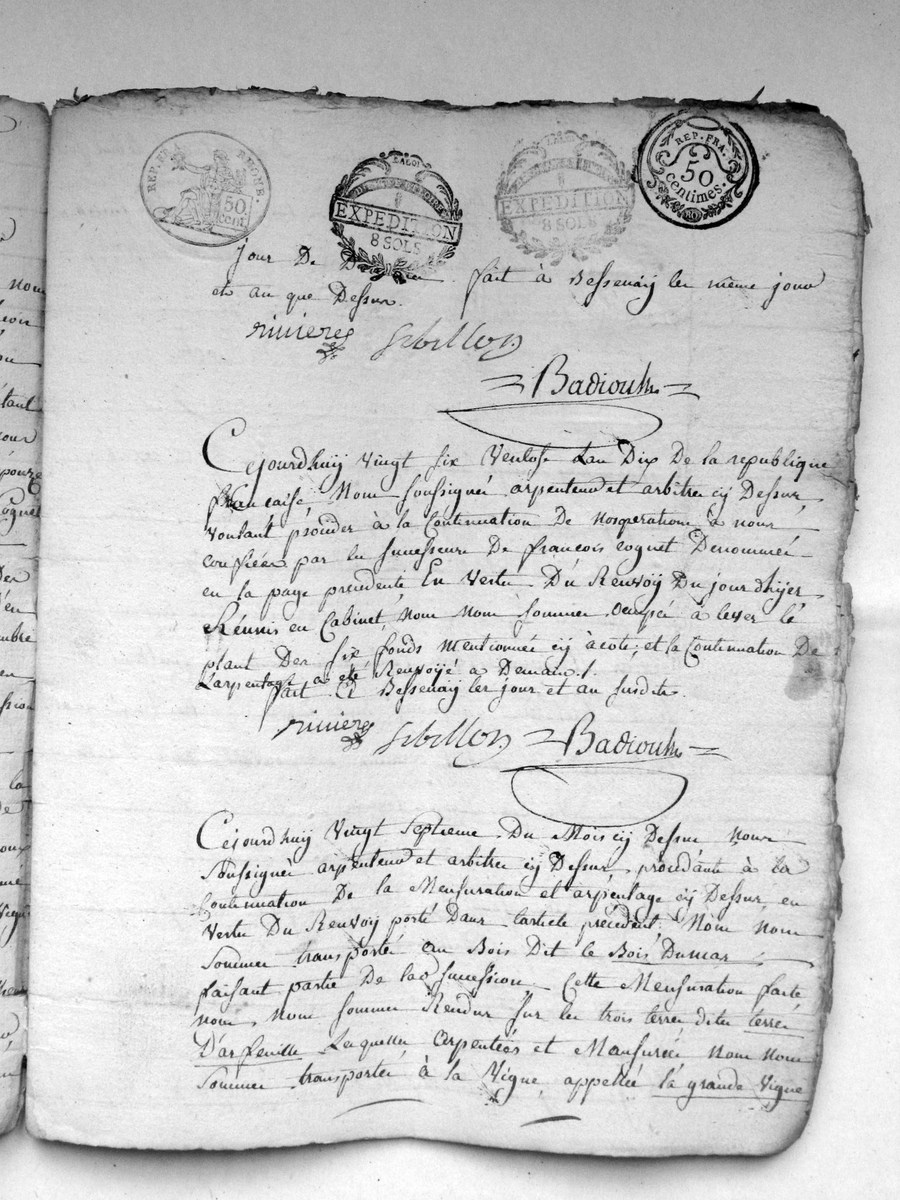 REP. FRA. REGYR.
50
cent.
EXPEDITION
8 SOLS
EXPEDITION
8 SOLS
REP. FRA.
50
centimes.
jour De fait à Bessenaÿ les même jour
et an que Dessus.
rivieres Sebillon
Badioulx
Cejourdhuÿ Vingt Six Ventose Lan Dix De la republique
francaise Nous Soussignés arpenteur et arbitres cÿ Dessus
Voulant procéder à la Continuation De nosperations à nous
confiées par les Successeurs De françois coquet Denommés
en la page precedente En Vertu Du Renvoÿ Du jour dhÿer
Réunis en Cabinet Nous Nous Sommes Ocupés à lever le
plant Des Six fonds mentionnés cÿ àcoté, et la Continuation De
L'arpentage a été Renvoÿé a Demain /.
fait à Bessenaÿ les jour et an Susdits.
rivieres Sebillon Badioulx
Céjourdhuÿ Vingt Septieme Du Mois cÿ Dessus Nous
Soussignés arpenteur et arbitres cÿ Dessus, procédants à La
Continuation De la Mensuration et arpentage cÿ Dessus, en
Vertu Du Renvoÿ porté Dans Larticle précédent, Nous Nous
Sommes transportés au Bois Dit le Bois Dumas
faisant partie De la Succession. Cette Mensuration faite
nous, Nous Sommes Rendus Sur les trois terres Dites terres
D'arfeuille Lesquelles arpentées et Mensurées Nous Nous
Sommes transportés à la Vigne appellée la grande Vigne